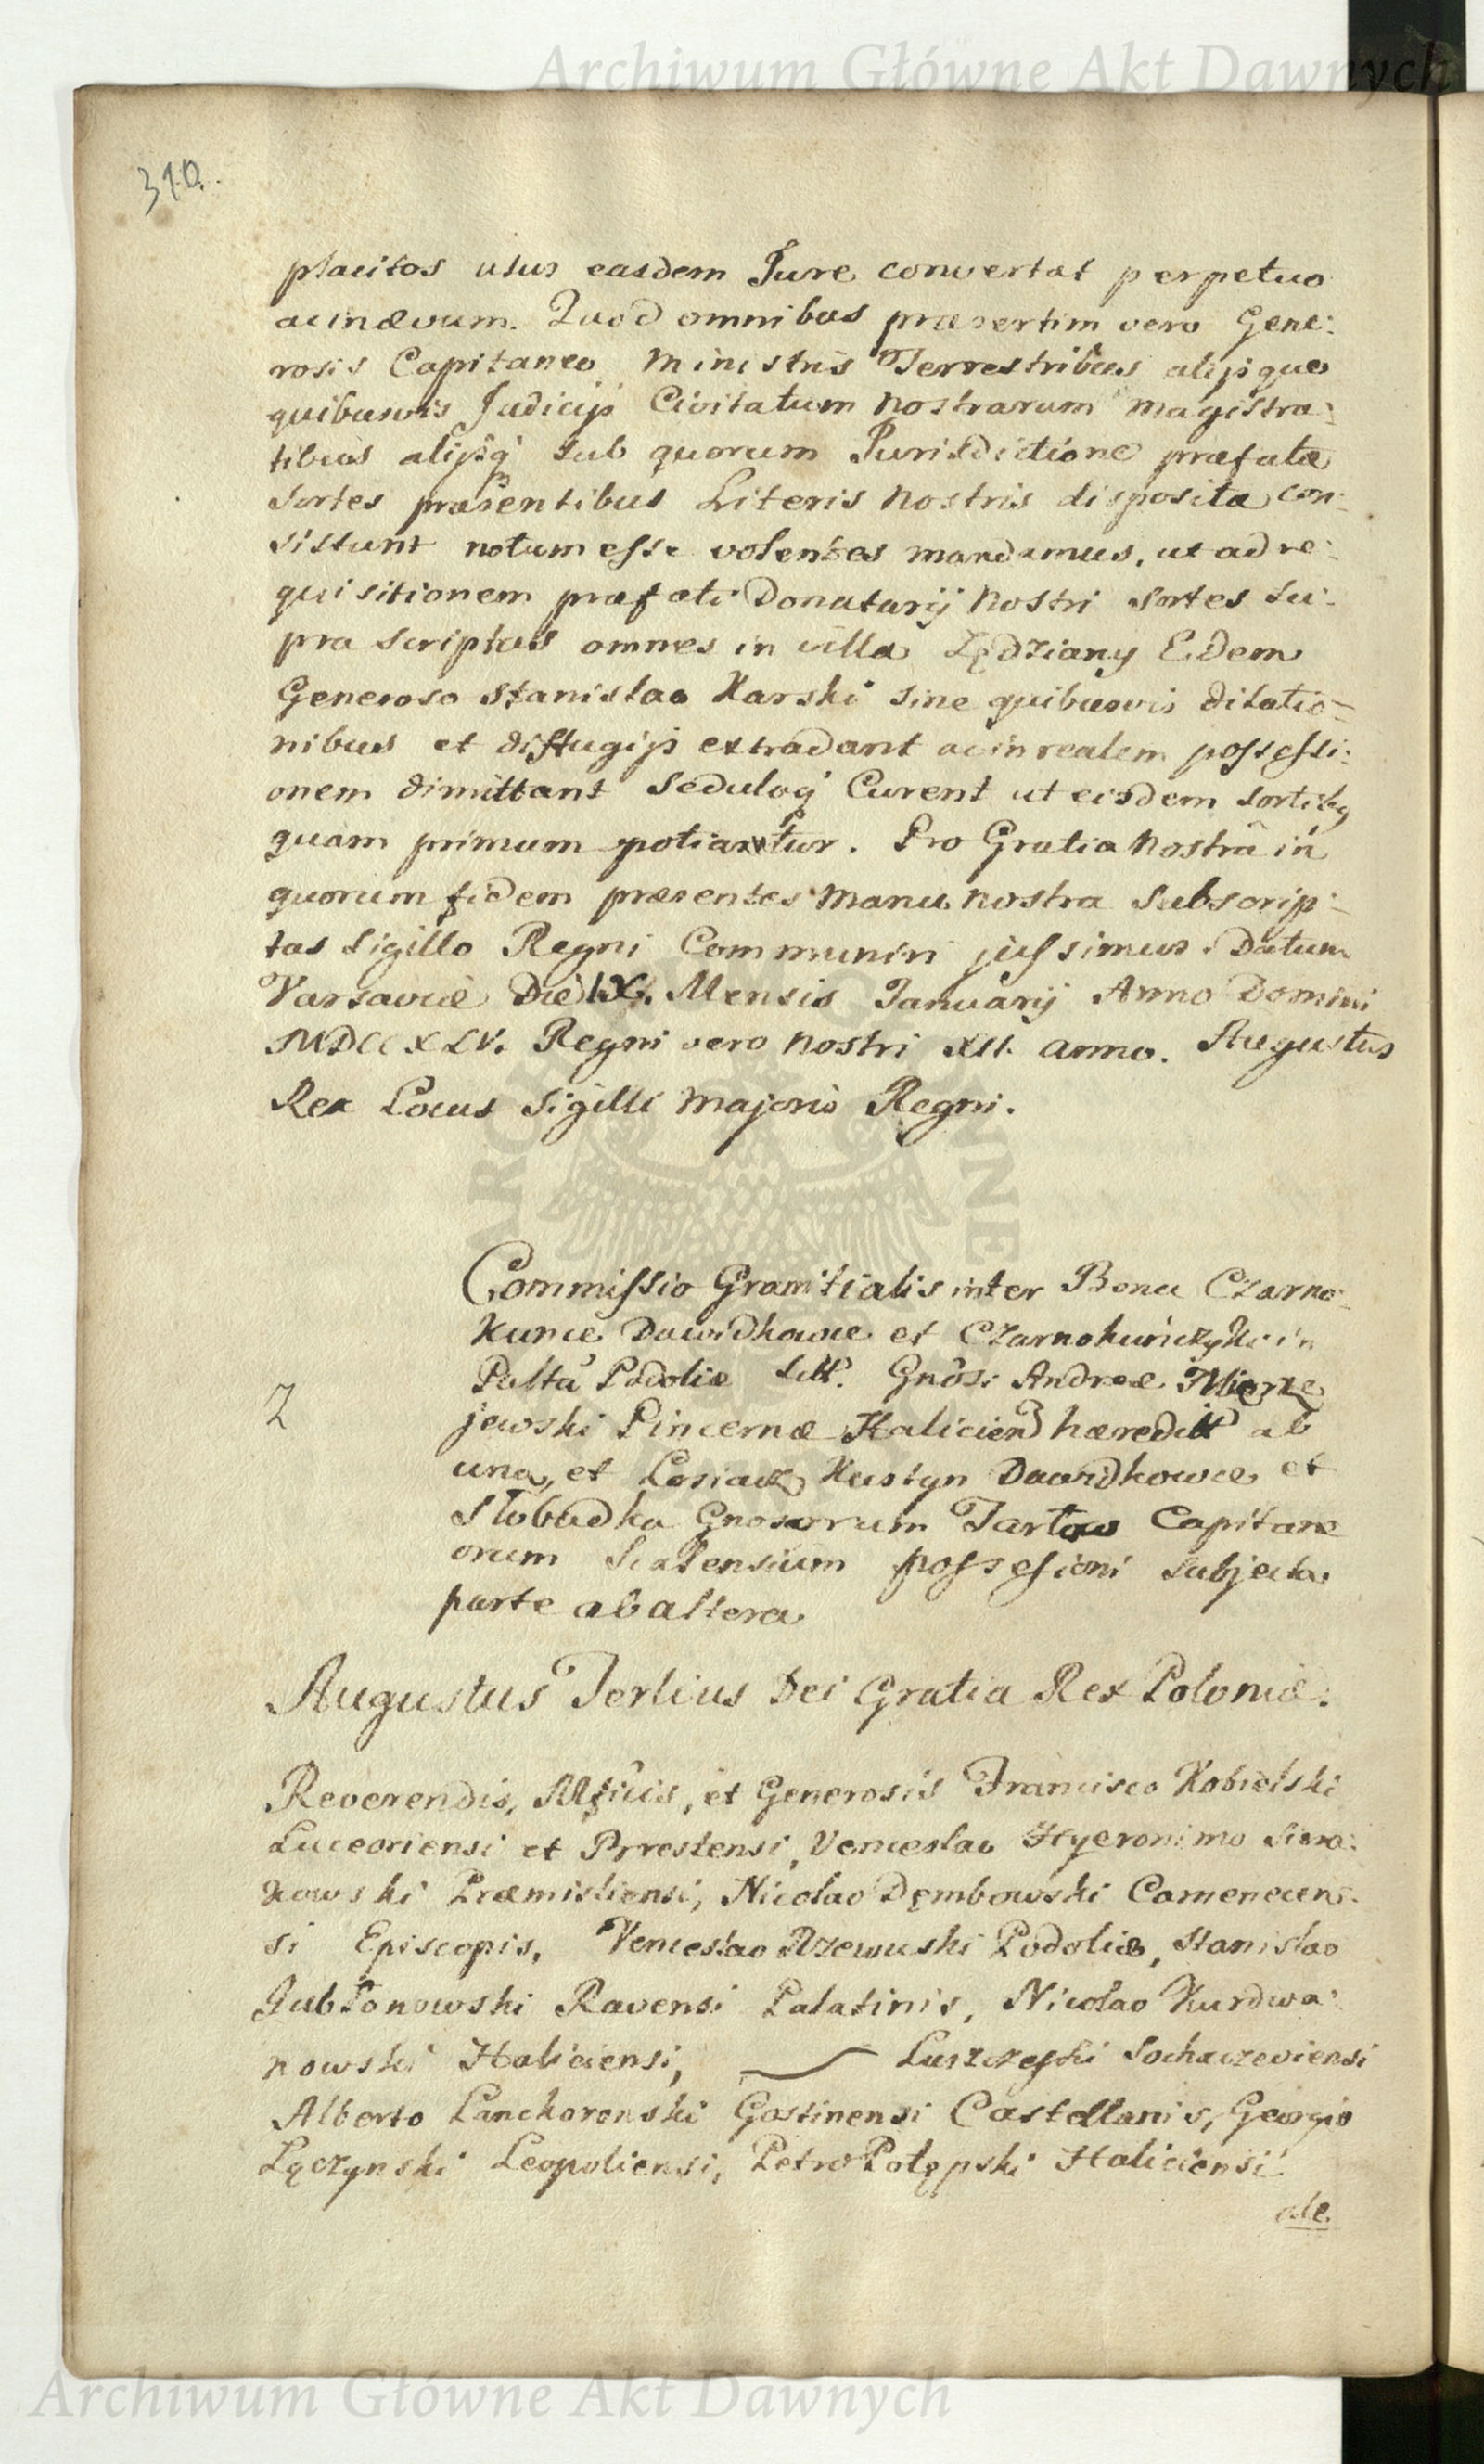 Archiwum Główne Akt Dawnych
310.
placitos usus easdem Jure convertat perpetuo
ac in ævum. Quod omnibus præsertim vero Gene:
rosis Capitaneo Ministris Terrestribus alijsque
quibusvis Judicijs Civitatum Nostrarum Magistra:
tibus alijsq̃ sub quorum Jurisdictione præfatæ
Sortes præsentibus Literis Nostris disposita con:
sistunt notum esse volentes mandamus, ut ad re:
quisitionem præfati Donatarij Nostri Sortes Su:
pra Scriptas omnes in villa Zędziany Eidem
Generoso Stanislao Karski sine quibusvis dilatio=
nibus et diffugijs extradant ac in realem possessi:
onem dimittant Seduloq̃ Curent ut eisdem Sortibq
quam primum potiatur. Pro Gratia Nostra in
quorum fidem præsentes Manu Nostra Subscrip:
tas Sigillo Regni Communiri jussimus. Datum
Varsaviæ Die IX. Mensis Januarij Anno Domini
MDCCXLV. Regni vero Nostri XII. anno. Augustus
Rex Locus Sigilli Majoris Regni.
Commissio Granitialis inter Bona Czarno:
Kunce Dawidkowce et Czarnokunczyki in
Pałtu Podoliæ Gnosi Andreæ Mierze
jewski Pincernæ Halicien hæredit ab
una, et Losiacz Kustyn Dawidkowce et
Słobudka Gnosorum Tarłow Capitane
orum Scalensium possesioni Subjecta
parte ab altera
2
Augustus Tertius Dei Gratia Rex Poloniæ:
Reverendis, Mfficis, et Generosis Francisco Kobielski
Luceoriensi et Brrestensi, Venceslao Hyeronimo Siera:
kowski Præmisliensi, Nicolao Dębowski Camenecen:
si Episcopis, Venceslao Rzewuski Podoliæ, Stanislao
Jabłonowski Ravensi Palatinis, Nicolao Kurdwa:
nowski Haliciensi, — Luszczeski Sochaczeviensi
Alberto Lanckoronski Gostinensi Castellanis, Georgio
Łączynski Leopoliensi, Petro Potępski Haliciensi
ale.
Archiwum Główne Akt Dawnych